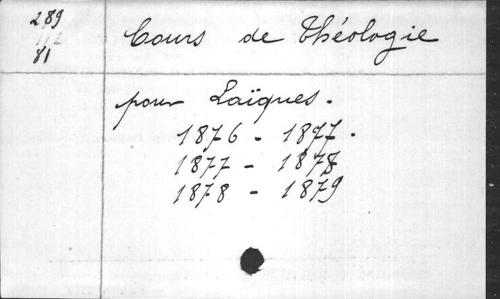 289
112
81
Cours de Théologie
pour Laïques.
1876 - 1877.
1877 - 1878
1878 - 1879